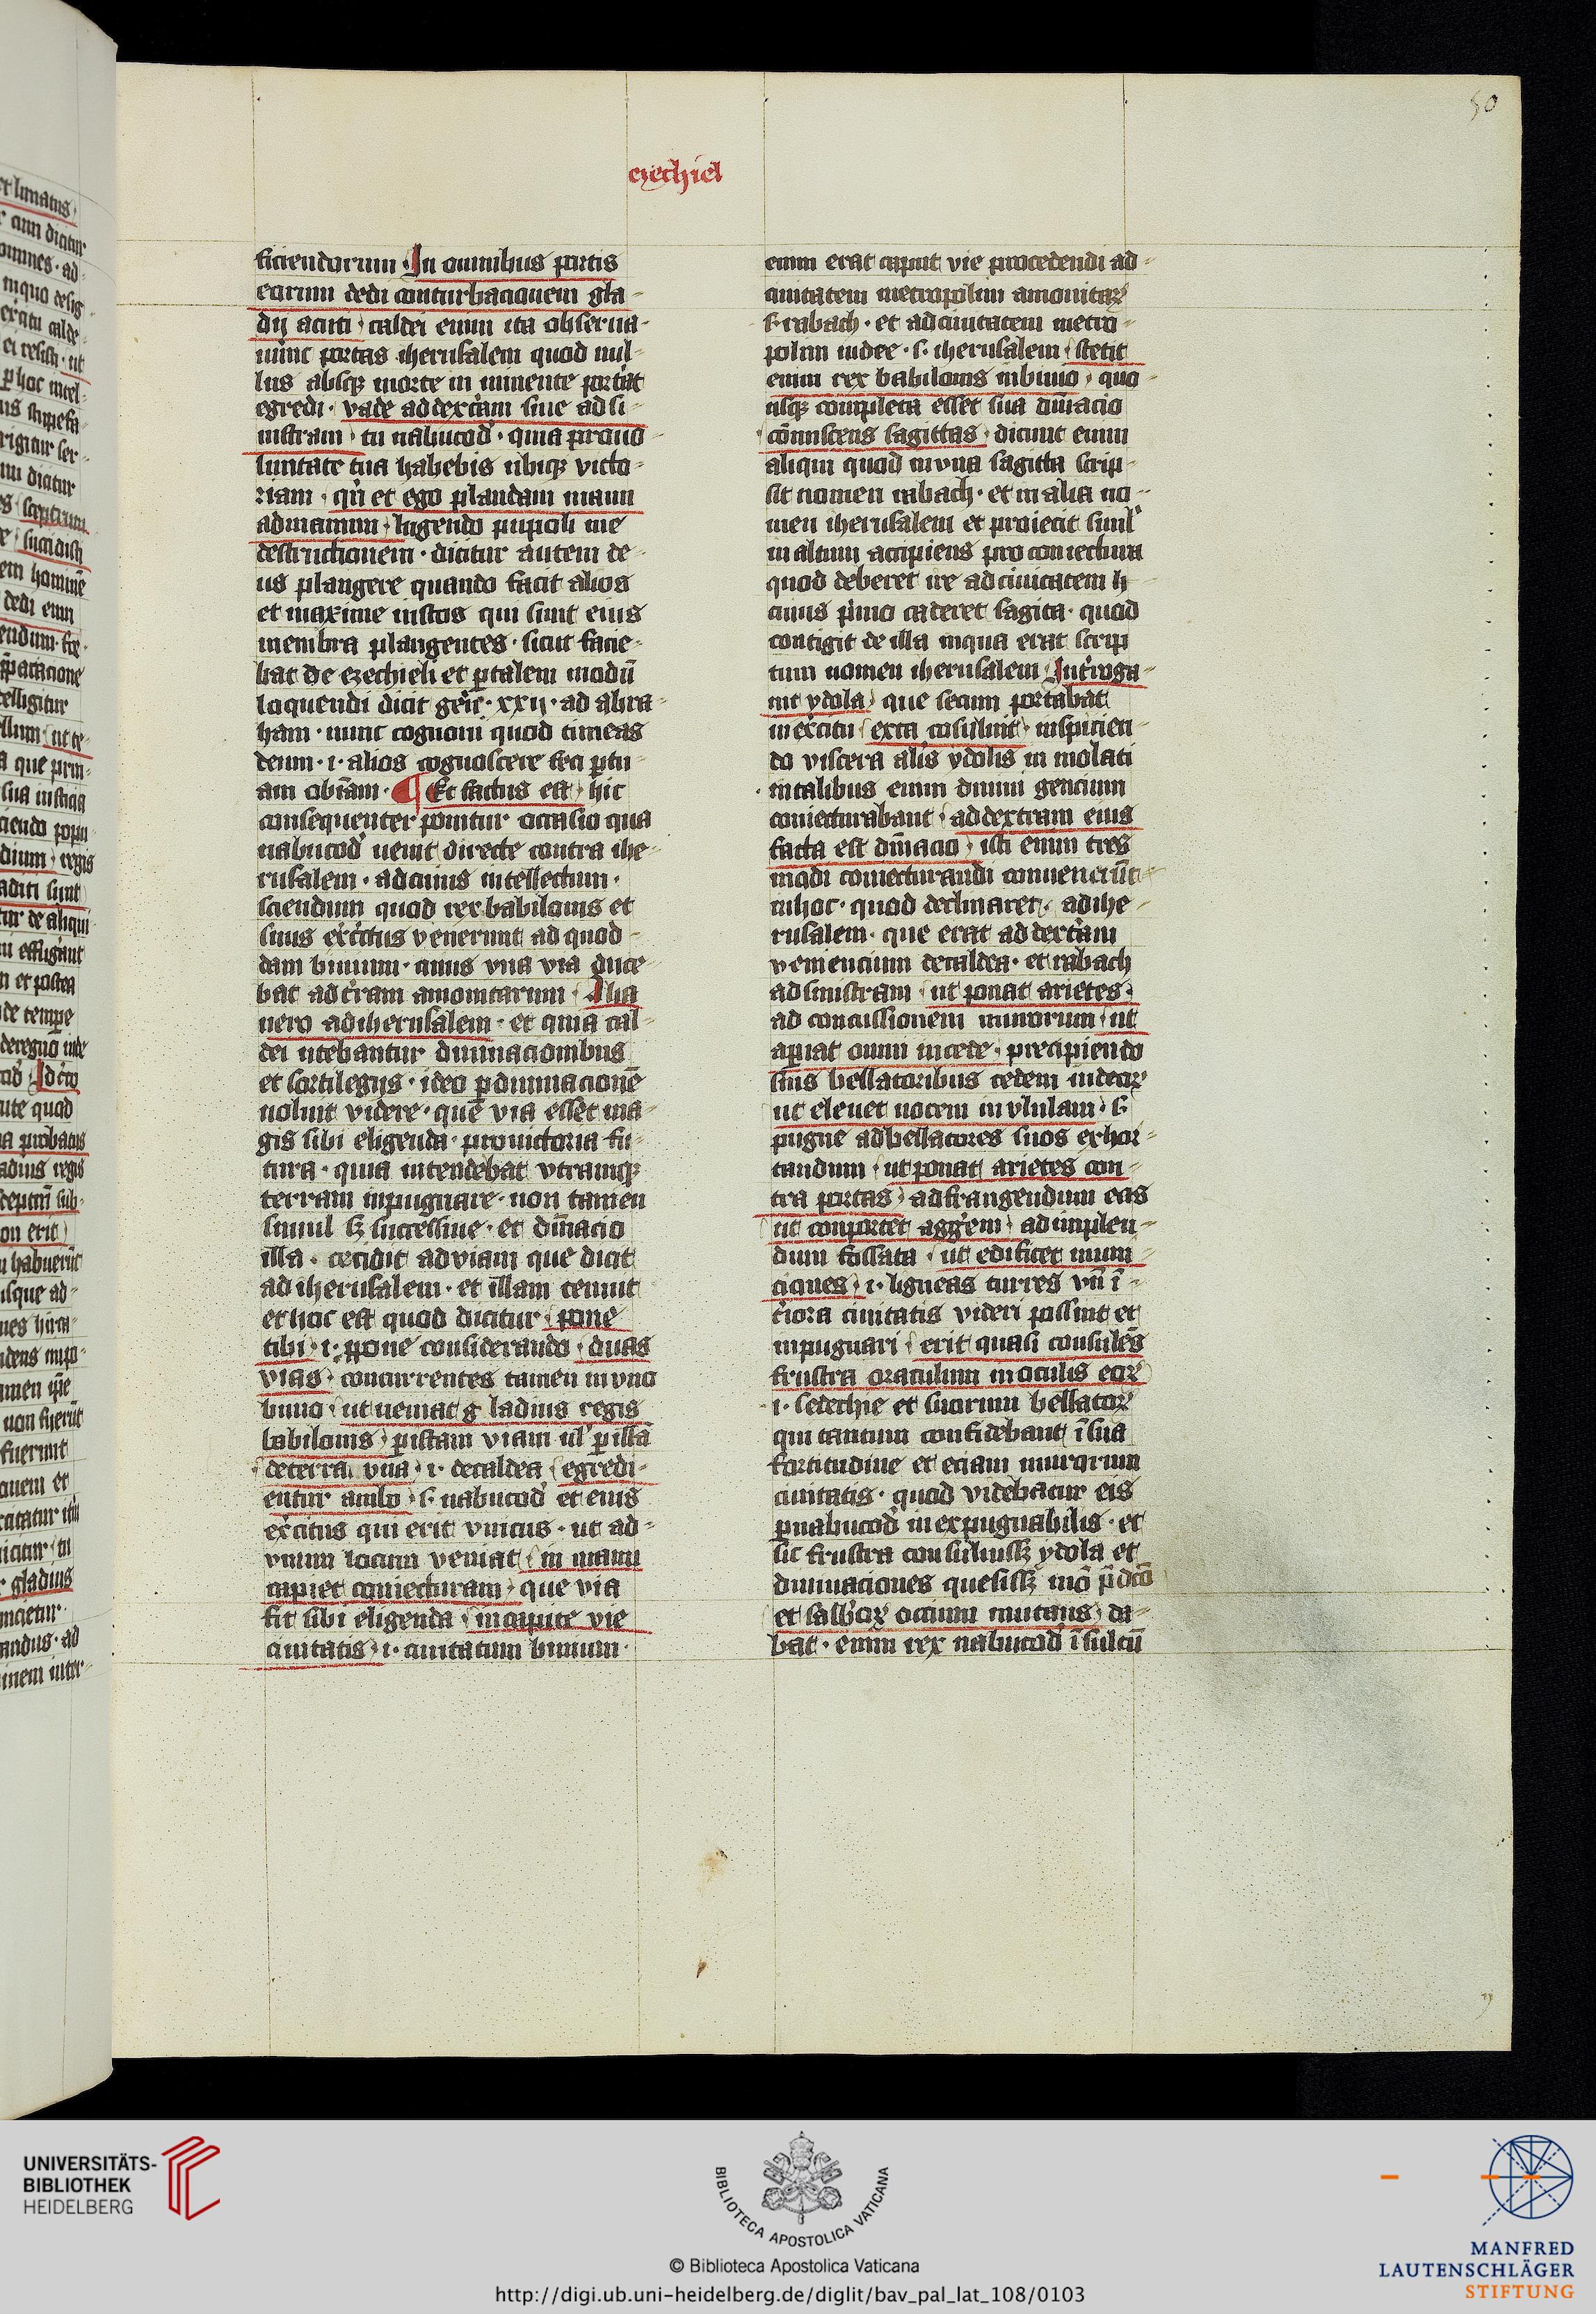 50
ezechiel
ficiendorum In omnibus portis
eorum dedi conturbacionem gla-
dij acuti caldei enim ita obserua-
uīnt portas iherusalem quod nul-
lus absqȝ morte in minente porťat
egredi · vade ad dexťam siue ad si-
nistram tu nabucod' · quia pro uo-
luntate tua habebis ubiqȝ victo-
riam · qn̄ et ego plaudam manu
ad manum lugendo pupuli me
destructionem · dicitur autem de-
us plangere quando facit alios
et maxime iustos qui sunt eius
membra plangentes · sicut facie-
bat de ezechieli et ꝑ talem modū
loquendi dicit geň · xxij · ad abra-
ham · nunc cognoui quod timeas
deum · i · alios cognoscere feci ꝑ tu-
am ob'iam · ¶ Et factus est hic
consequenter ponitur occasio qua
nabucod' uenit directe contra ihe-
rusalem · ad cuius intellectum ·
sciendum quod rex babilonis et
suus exe'citus venerunt ad quod-
dam biuium · cuius vna via duce-
bat ad t'ram amonitarum · Alia
uero ad iherusalem · et quia cal-
dei utebantur diuinacionibus
et sortilegijs · ideo ꝑ diuinacionē
uoluit videre · quē via esset ma-
gis sibi eligenda · pro uictoria fu-
tura · quia intendebat vtramqȝ
terram inpugnare · non tamen
simul sȝ successiue · et diū̄acio
illa · cecidit ad viam que dicit
ad iherusalem · et illam tenuit
et hoc est quod dicitur pone
tibi · i · pone considerando duas
vias concurrentes tamen in vno
biuio ut ueniat g ladius regis
babilonis ꝑ istam viam ul' ꝑ illā
de terra vna · i · de caldea egredi-
entur ambo s · nabucod' et eius
exe'citus qui erit vnitus · ut ad-
vnum locum veniat in manu
capiet coniecturam que via
sit sibi eligenda in capite vie
ciuitatis · i · ciuitatum biuium ·
enim erat caput vie procedendi ad-
ciuitatem metropolim amonitaꝝ
s · rabach · et ad ciuitatem metro-
polim iudee · s · iherusalem stetit
enim rex babilonis in biuio quo-
usqȝ completa esset sua diū̄acio
cōmiscens sagittas dicunt enim
aliqui quod in vna sagitta scrip-
sit nomen rabach · et in alia no-
men iherusalem et proiecit simľ
in altum accipiens pro coniectura
quod deberet ire ad ciuitatem h
cuius pⁱmo caderet sagita · quod
contigit de illa in qua erat scrip
tum nomen iherusalem Int'roga-
uit ydola que secum portabat
in exe'citu exta cōsuluit inspicien-
do viscera alīs ydolis in molati
in talibus enim diuini gencium
coniecturabant ad dextram eius
facta est diū̄acio isti enim tres
modi coniecturandi conueneru̅t
in hoc · quod declinaret · ad ihe-
rusalem · que erat ad dexťam
veniencium de caldea · et rabach
ad sinistram ut ponat arietes ·
ad concussionem murorum ut
apīat omni in cede precipiendo
suis bellatoribus cedem iudeoꝝ
ut eleuet uocem in vlulam · s ·
pugne ad bellatores suos exhor-
tandum ut ponat arietes con-
tra portas ad frangendum eas
ut conportet agg'em ad implen-
dum fossata ut edificet muni-
ciones · i · ligneas turres vn̄ ī-
t'iora ciuitatis videri possint et
inpugnari erit quasi consulēs
frustra oraculum in oculis eoꝝ
· i · sedechie et suorum bellatoꝝ
qui tantum confidebant ī sua
fortitudine et eciam murorum
ciuitatis · quod videbatur eis
ꝑ nabucod' inexpugnabilis · et
sic frustra consuluissȝ ydola et
diuinaciones quesissȝ mō p̄dcō
et sabb'oꝝ ocium mutans da-
bat · enim rex nabucod' īsultū
UNIVERSITÄTS-
BIBLIOTHEK
HEIDELBERG
BIBLIOTECA APOSTOLICA VATICANA
© Biblioteca Apostolica Vaticana
http://digi.ub.uni-heidelberg.de/diglit/bav_pal_lat_108/0103
MANFRED
LAUTENSCHLÄGER
STIFTUNG